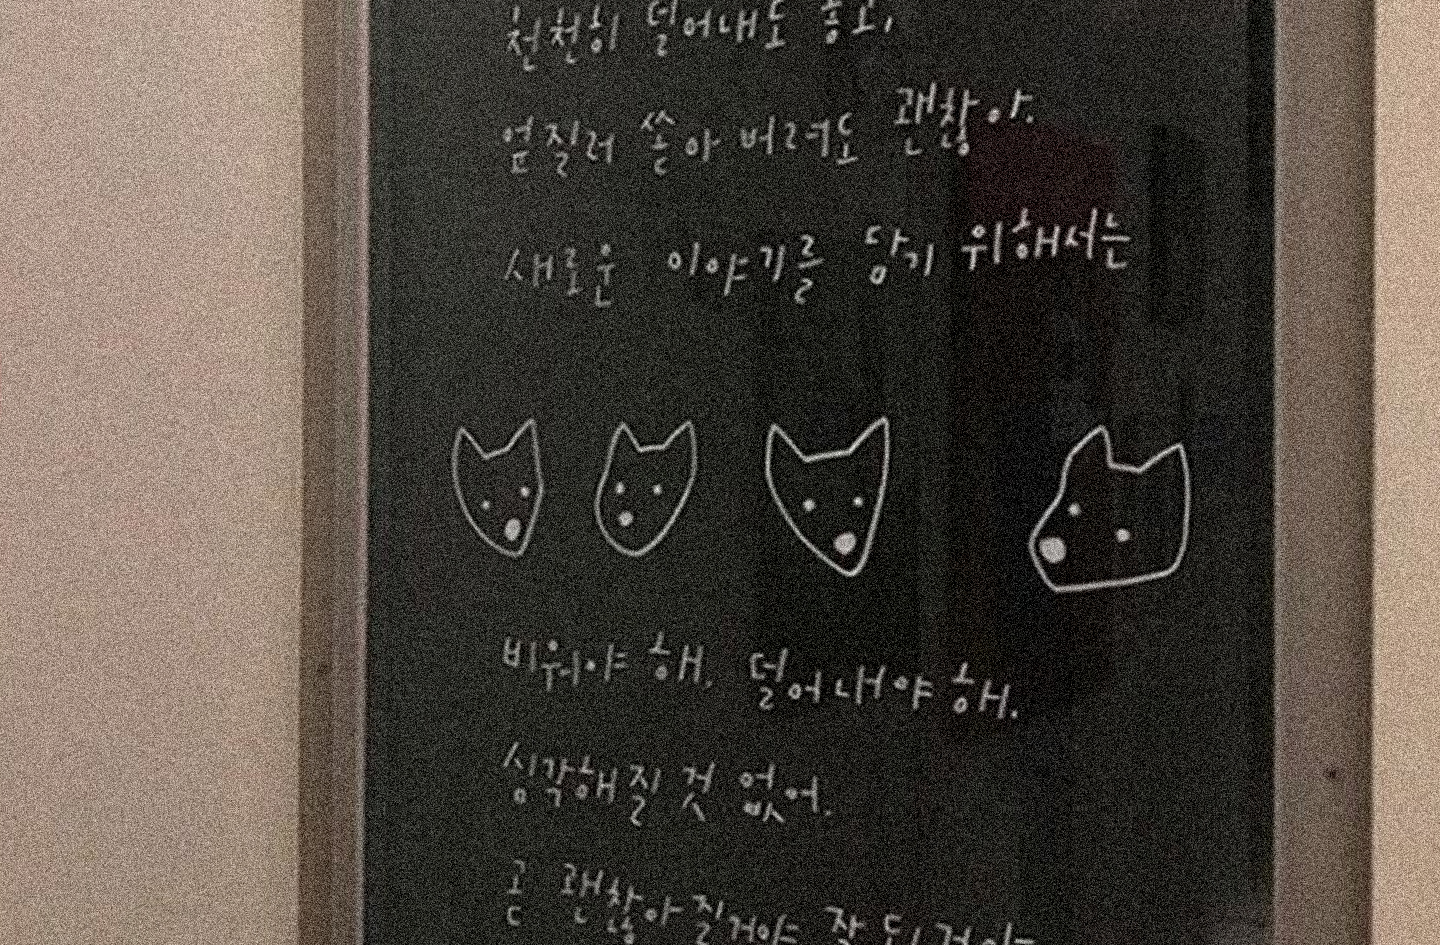 천천히 덜어내도 좋고,
엎질러 쏟아 버려도 괜찮아.
새로운 이야기를 담기 위해서는
비워야 해. 덜어내야 해.
심각해질 것 없어.
곧 괜찮아질거야 잘 될거야